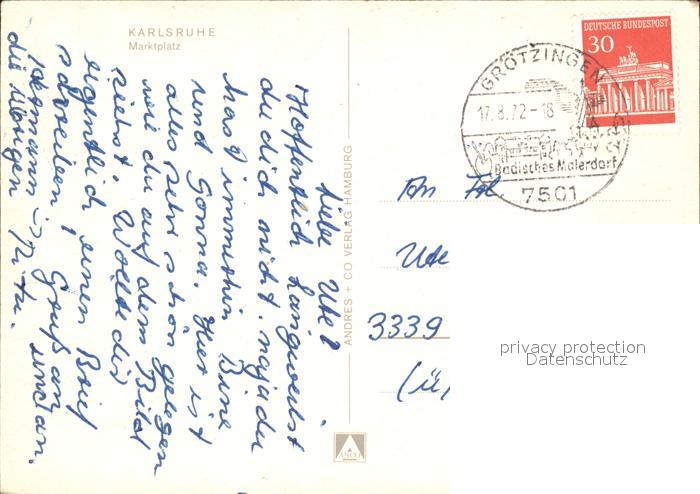 KARLSRUHE
Marktplatz
DEUTSCHE BUNDESPOST
30
GRÖTZINGEN
17.8.72-18
Badisches Malerdorf
7501
ANDRES + CO VERLAG HAMBURG
ANCO
Liebe Ute!
Hoffentlich langweilst
du dich nicht. naja du
hast immerhin Bine
und Gonna. Hier ist
alles sehr schön gelegen
wie du auf dem Bild
siehst. Wollte dir
eigentlich einen Brief
schreiben. Gruß an
und an
die übrigen
An Frl.
Ute
3339
(ü
privacy protection
Datenschutz